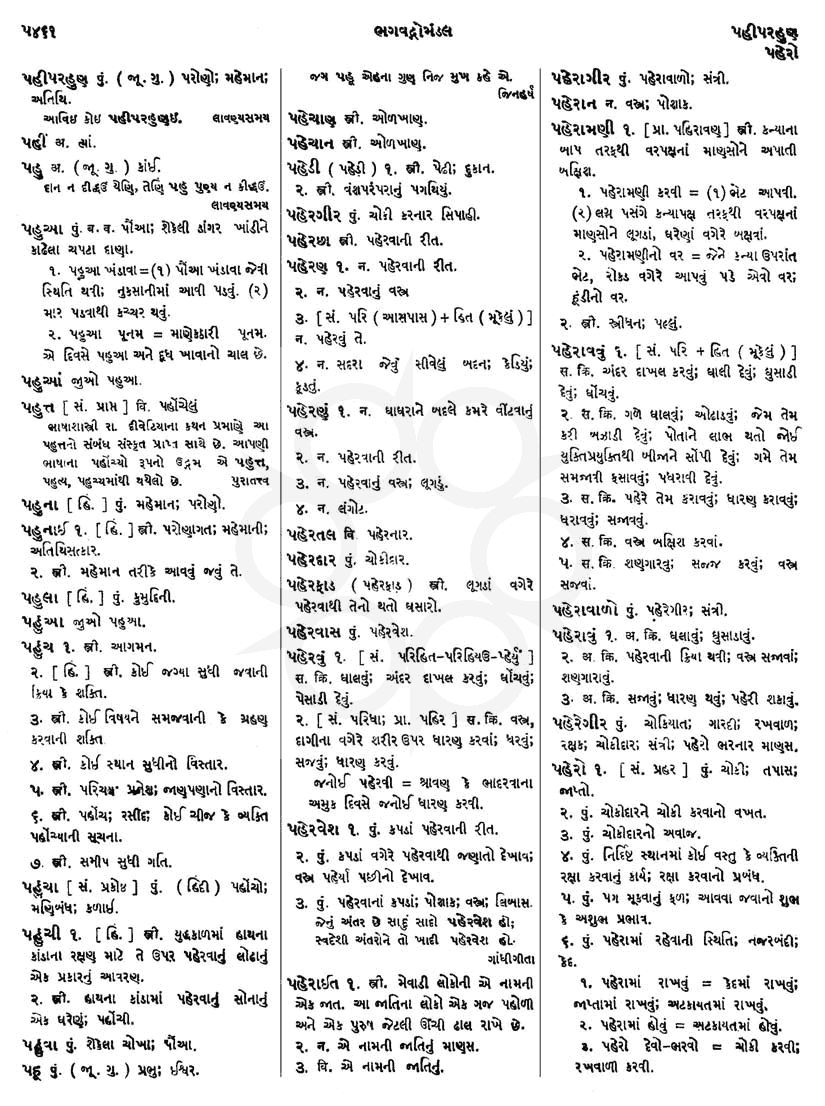 ૫૪૬૧
ભગવદ્ગોમંડલ
પહીપરહુણ
પહેરો
પહીપરહુણ પું. ( જૂ. ગુ. ) પરોણો; મહેમાન;
અતિથિ.
આવિઇ કોઇ પહીપરહુણઇ. લાવણ્યસમય
પહીં અ. હ્યાં.
પહુ અ. ( જૂ. ગુ. ) કાંઈ.
દાન ન દીદ્ધઉ યેણિ, તેણિં પહુ પુણ્ય ન કીદ્ધઉ.
લાવણ્યસમય
પહુઆ પું. બ. વ. પૌંઆ; શેકેલી ડાંગર ખાંડીને
કાઢેલા ચપટા દાણા.
૧. પહુઆ ખંડાવા=(૧) પૌંઆ ખંડાવા જેવી
સ્થિતિ થવી; નુકસાનીમાં આવી પડવું. (૨)
માર પડવાથી કચ્ચર થવું.
૨. પહુઆ પૂનમ = માણેકઠારી પૂનમ.
એ દિવસે પહુઆ અને દૂધ ખાવાનો ચાલ છે.
પહુઆં જુઓ પહુઆ.
પહુત્ત [ સં. પ્રાપ્ત ] વિ. પહોંચેલું
ભાષાશાસ્ત્રી રા. દીવેટિયાના કથન પ્રમાણે આ
પહુત્તનો સંબંધ સંસ્કૃત પ્રાપ્ત સાથે છે. આપણી
ભાષાના પહોંચ્યો રૂપનો ઉદ્ગમ એ પહુત્ત,
પહુત્ય, પહુચ્ચમાંથી થયેલો છે. પુરાતત્ત્વ
પહુના [ હિં. ] પું. મહેમાન; પરોણો.
પહુનાઈ ૧. [ હિં. ] સ્ત્રી. પરોણાગત; મહેમાની;
અતિથિસત્કાર.
૨. સ્ત્રી. મહેમાન તરીકે આવવું જવું તે.
પહુલા [ હિં. ] પું. કુમુદિની.
પહુંઆ જુઓ પહુઆ.
પહુંચ ૧. સ્ત્રી. આગમન.
૨. [ હિં. ] સ્ત્રી. કોઈ જગ્યા સુધી જવાની
ક્રિયા કે શક્તિ.
૩. સ્ત્રી. કોઈ વિષયને સમજવાની કે ગ્રહણ
કરવાની શક્તિ.
૪. સ્ત્રી. કોઈ સ્થાન સુધીનો વિસ્તાર.
૫. સ્ત્રી. પરિચય પ્રવેશ; જાણપણાનો વિસ્તાર.
૬. સ્ત્રી. પહોંચ; રસીદ; કોઈ ચીજ કે વ્યક્તિ
પહોંચ્યાની સૂચના.
૭. સ્ત્રી. સમીપ સુધી ગતિ.
પહુંચા [ સં. પ્રકોષ્ઠ ] પું. ( હિંદી ) પહોંચો;
મણિબંધ; કળાઈ.
પહુંચી ૧. [ હિં. ] સ્ત્રી. યુદ્ધકાળમાં હાથના
કાંડાના રક્ષણ માટે તે ઉપર પહેરવાનું લોઢાનું
એક પ્રકારનું આવરણ.
૨. સ્ત્રી. હાથના કાંડામાં પહેરવાનું સોનાનું
એક ઘરેણું; પહોંચી.
પહુંવા પું. શેકેલા ચોખા; પૌંઆ.
પહૂ પું. ( જૂ. ગુ. ) પ્રભુ; ઈશ્વર.
જગ પહૂ એહના ગુણ નિજ મુખ કહે એ.
જિનહર્ષ
પહેચાણ સ્ત્રી. ઓળખાણ.
પહેચાન સ્ત્રી. ઓળખાણ.
પહેડી ( પહેડી ) ૧. સ્ત્રી. પેઢી; દુકાન.
૨. સ્ત્રી. વંશપરંપરાનું પગથિયું.
પહેરગીર પું. ચોકી કરનાર સિપાહી.
પહેરછા સ્ત્રી. પહેરવાની રીત.
પહેરણ ૧. ન. પહેરવાની રીત.
૨. ન. પહેરવાનું વસ્ત્ર
૩. [ સં. પરિ ( આસપાસ ) + હિત ( મૂકેલું ) ]
ન. પહેરવું તે.
૪. ન. સદરા જેવું સીવેલું બદન; કેડિયું;
કૂડતું.
પહેરણું ૧. ન. ઘાઘરાને બદલે કમરે વીંટવાનું
વસ્ત્ર.
૨. ન. પહેરવાની રીત.
૩. ન. પહેરવાનું વસ્ત્ર; લૂગડું.
૪. ન. લંગોટ.
પહેરતલ વિ. પહેરનાર.
પહેરદાર પું. ચોકીદાર.
પહેરફાડ ( પહેરફાડ઼ ) સ્ત્રી. લૂગડાં વગેરે
પહેરવાથી તેનો થતો ઘસારો.
પહેરવાસ પું. પહેરવેશ.
પહેરવું ૧. [ સં. પરિહિત-પરિહિયઉ-પ્હેર્યું ]
સ. ક્રિ. ઘાલવું; અંદર દાખલ કરવું; ઘોંચવું;
પેસાડી દેવું.
૨. [ સં. પરિધા; પ્રા. પહિર ] સ. ક્રિ. વસ્ત્ર,
દાગીના વગેરે શરીર ઉપર ધારણ કરવાં; ધરવું;
સજવું; ધારણ કરવું.
જનોઈ પહેરવી = શ્રાવણ કે ભાદરવાના
અમુક દિવસે જનોઈ ધારણ કરવી.
પહેરવેશ ૧. પું. કપડાં પહેરવાની રીત.
૨. પું. કપડાં વગેરે પહેરવાથી જણાતો દેખાવ;
વસ્ત્ર પહેર્યા પછીનો દેખાવ.
૩. પું. પહેરવાનાં કપડાં; પોશાક; વસ્ત્ર; લિબાસ.
જેનું અંતર છે સાદું સાદો પહેરવેશ હો;
સ્વદેશી અંતરોને તો ખાદી પહેરવેશ હો.
ગાંધીગીતા
પહેરાઈત ૧. સ્ત્રી. મેવાડી લોકોની એ નામની
એક જાત. આ જાતિના લોકો એક ગજ પહોળી
અને એક પુરુષ જેટલી ઊંચી ઢાલ રાખે છે.
૨. ન. એ નામની જાતિનું માણસ.
૩. વિ. એ નામની જાતિનું.
પહેરાગીર પું. પહેરાવાળો; સંત્રી.
પહેરાન ન. વસ્ત્ર; પોશાક.
પહેરામણી ૧. [ પ્રા. પહિરાવણ ] સ્ત્રી. કન્યાના
બાપ તરફથી વરપક્ષનાં માણસોને અપાતી
બક્ષિશ.
૧. પહેરામણી કરવી = (૧) ભેટ આપવી.
(૨) લગ્ન પસંગે કન્યાપક્ષ તરફથી વરપક્ષનાં
માણસોને લૂગડાં, ઘરેણાં વગેરે બક્ષવાં.
૨. પહેરામણીનો વર = જેને કન્યા ઉપરાંત
ભેટ, રોકડ વગેરે આપવું પડે એવો વર;
હૂંડીનો વર.
૨. સ્ત્રી. સ્ત્રીધન; પલ્લું.
પહેરાવવું ૧. [ સં. પરિ + હિત ( મૂકેલું ) ]
સ. ક્રિ. અંદર દાખલ કરવું; ઘાલી દેવું; ઘુસાડી
દેવું; ઘોંચવું.
૨. સ. ક્રિ. ગળે ઘાલવું; ઓઢાડવું; જેમ તેમ
કરી બઝાડી દેવું; પોતાને લાભ થતો જોઈ
યુક્તિપ્રયુક્તિથી બીજાને સોંપી દેવું; ગમે તેમ
સમજાવી ફસાવવું; પધરાવી દેવું.
૩. સ. ક્રિ. પહેરે તેમ કરાવવું; ધારણ કરાવવું;
ધરાવવું; સજાવવું.
૪. સ. ક્રિ. વસ્ત્ર બક્ષિશ કરવાં.
૫. સ. ક્રિ. શણગારવું; સજ્જ કરવું; વસ્ત્ર
સજાવાં.
પહેરાવાળો પું. પહેરેગીર; સંત્રી.
પહેરાવું ૧. અ. ક્રિ. ઘલાવું; ઘુસાડાવું.
૨. અ. ક્રિ. પહેરવાની ક્રિયા થવી; વસ્ત્ર સજાવાં;
શણગારાવું.
૩. અ. ક્રિ. સજાવું; ધારણ થવું; પહેરી શકાવું.
પહેરેગીર પું. ચોકિયાત; ગારદી; રખવાળ;
રક્ષક; ચોકીદાર; સંત્રી; પહેરો ભરનાર માણસ.
પહેરો ૧. [ સં. પ્રહર ] પું. ચોકી; તપાસ;
જાપ્તો.
૨. પું. ચોકીદારને ચોકી કરવાનો વખત.
૩. પું. ચોકીદારનો અવાજ.
૪. પું. નિર્દિષ્ટ સ્થાનમાં કોઈ વસ્તુ કે વ્યક્તિની
રક્ષા કરવાનું કાર્ય; રક્ષા કરવાનો પ્રબંધ.
૫. પું. પગ મૂકવાનું ફળ; આવવા જવાનો શુભ
કે અશુભ પ્રભાવ.
૬. પું. પહેરામાં રહેવાની સ્થિતિ; નજરબંદી;
કેદ.
૧. પહેરામાં રાખવું = કેદમાં રાખવું;
જાપ્તામાં રાખવું; અટકાયતમાં રાખવું.
૨. પહેરામાં હોવું = અટકાયતમાં હોવું.
૩. પહેરો દેવો-ભરવો = ચોકી કરવી;
રખવાળી કરવી.